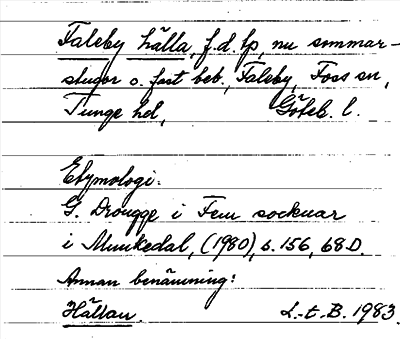 Faleby hälla, f.d. lp, nu sommar-
stugor o. fast beb., Faleby, Foss sn,
Tunge hd, Göteb. l.
Etymologi:
G. Drougge i Fem socknar
i Munkedal, (1980), s. 156, 68D.
Annan benämning:
Hällan. L.-t.-B. 1983.